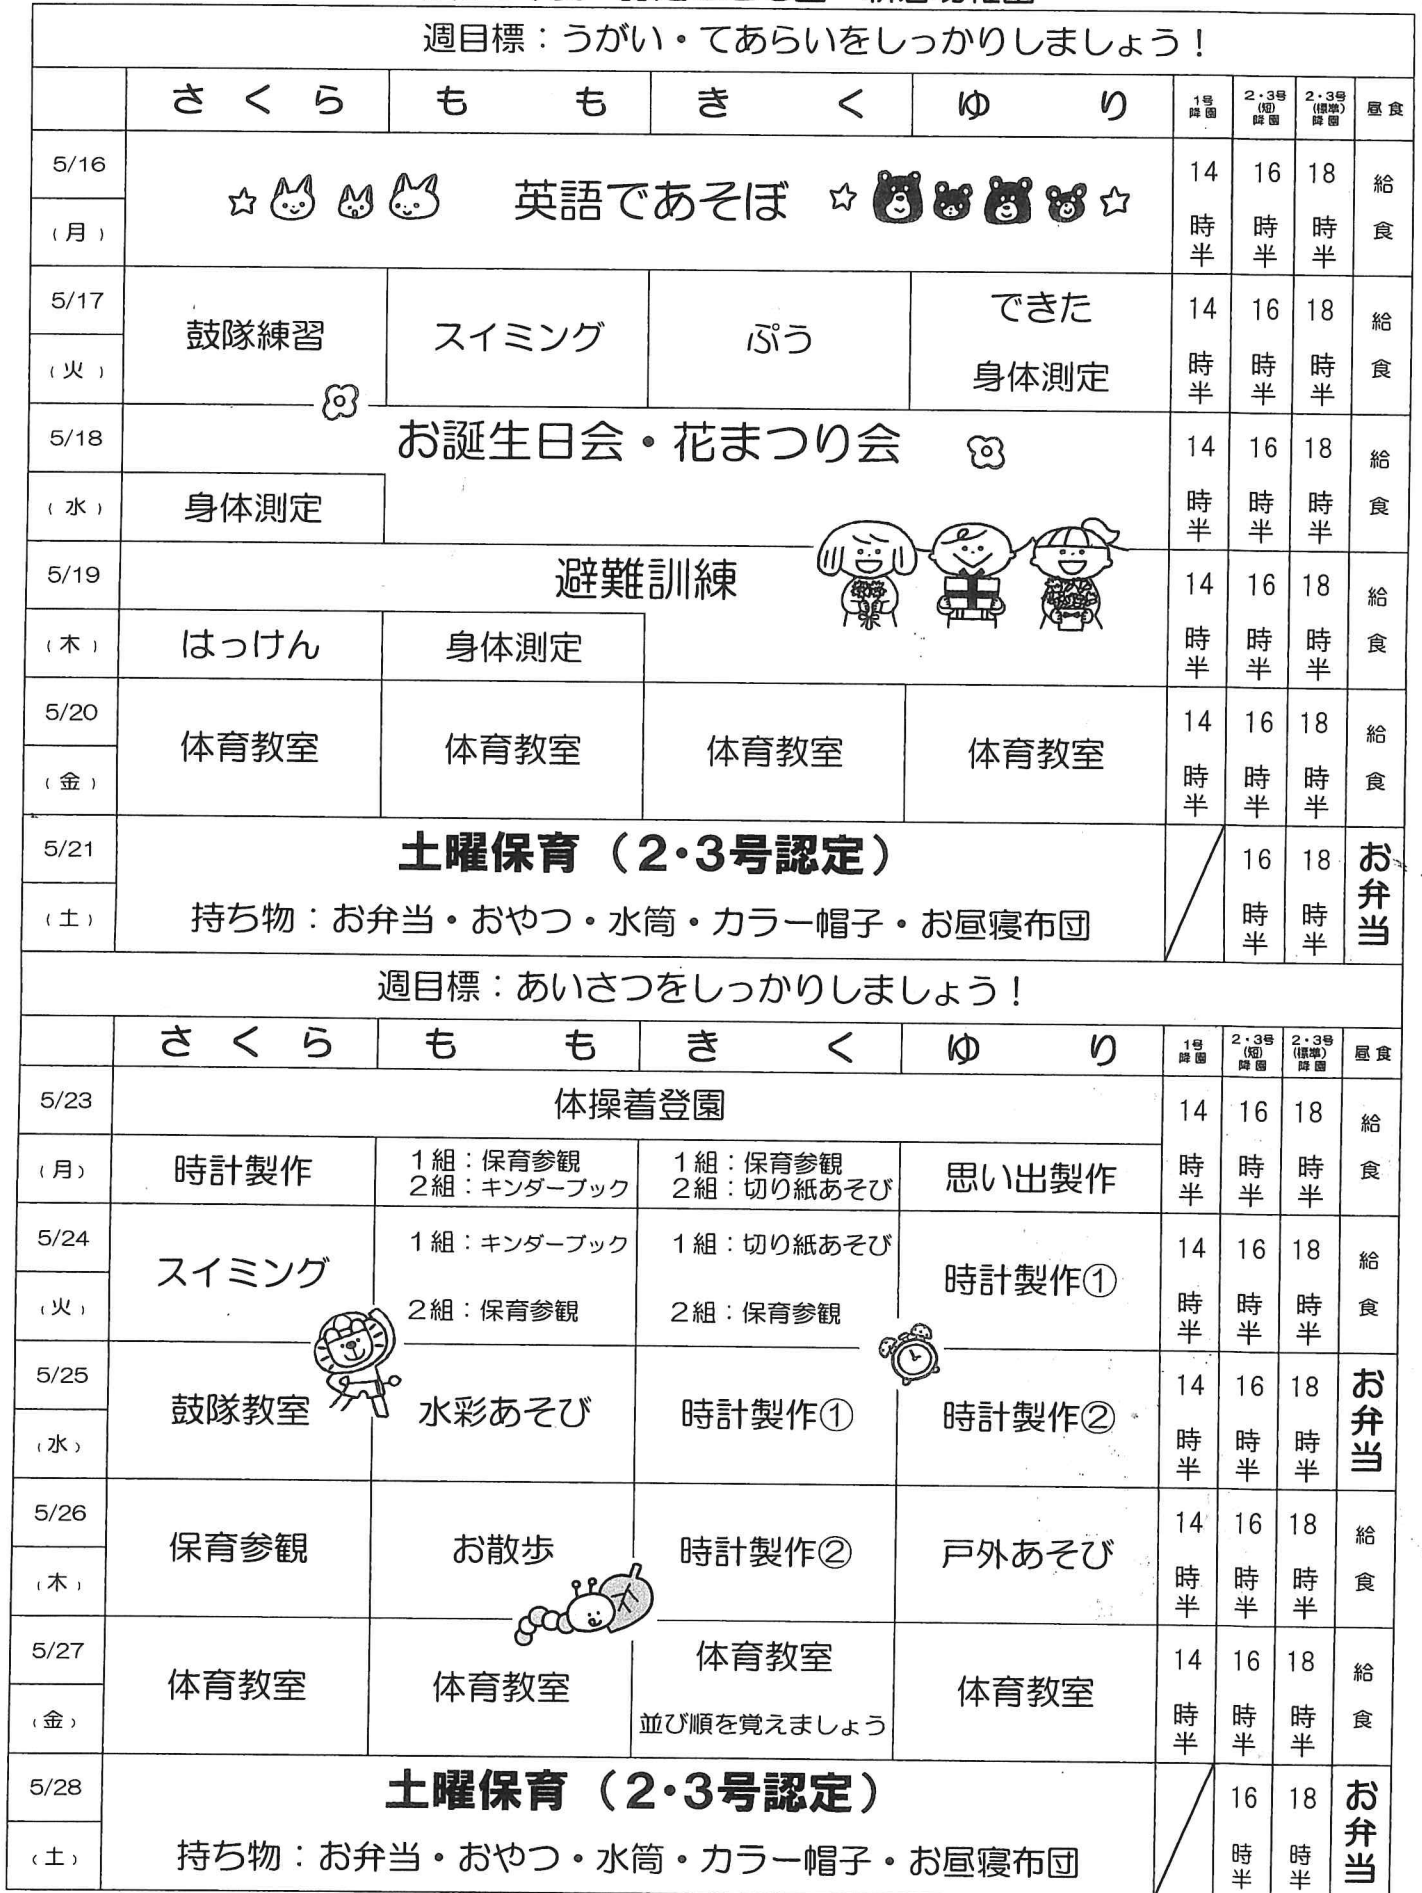 週目標：うがい・てあらいをしっかりしましょう！
さくら もも きく ゆり 1号降園 2・3号(短)降園 2・3号(標準)降園 昼食
5/16
(月)
英語であそぼ
14時半 16時半 18時半 給食
5/17
(火)
鼓隊練習 スイミング ぷう できた
身体測定
14時半 16時半 18時半 給食
5/18
(水)
お誕生日会・花まつり会
身体測定
14時半 16時半 18時半 給食
5/19
(木)
避難訓練
はっけん 身体測定
14時半 16時半 18時半 給食
5/20
(金)
体育教室 体育教室 体育教室 体育教室
14時半 16時半 18時半 給食
5/21
(土)
土曜保育（2・3号認定）
持ち物：お弁当・おやつ・水筒・カラー帽子・お昼寝布団
16時半 18時半 お弁当
週目標：あいさつをしっかりしましょう！
さくら もも きく ゆり 1号降園 2・3号(短)降園 2・3号(標準)降園 昼食
5/23
(月)
体操着登園
時計製作
1組：保育参観
2組：キンダーブック
1組：保育参観
2組：切り紙あそび
思い出製作
14時半 16時半 18時半 給食
5/24
(火)
スイミング
1組：キンダーブック
2組：保育参観
1組：切り紙あそび
2組：保育参観
時計製作①
14時半 16時半 18時半 給食
5/25
(水)
鼓隊教室 水彩あそび 時計製作① 時計製作②
14時半 16時半 18時半 お弁当
5/26
(木)
保育参観 お散歩 時計製作② 戸外あそび
14時半 16時半 18時半 給食
5/27
(金)
体育教室 体育教室 体育教室
並び順を覚えましょう
体育教室
14時半 16時半 18時半 給食
5/28
(土)
土曜保育（2・3号認定）
持ち物：お弁当・おやつ・水筒・カラー帽子・お昼寝布団
16時半 18時半 お弁当